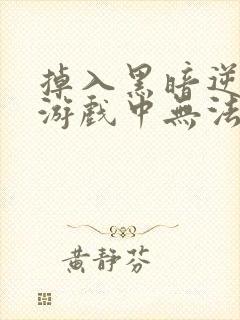 掉入黑暗逆
游戲中無法
黄靜芬